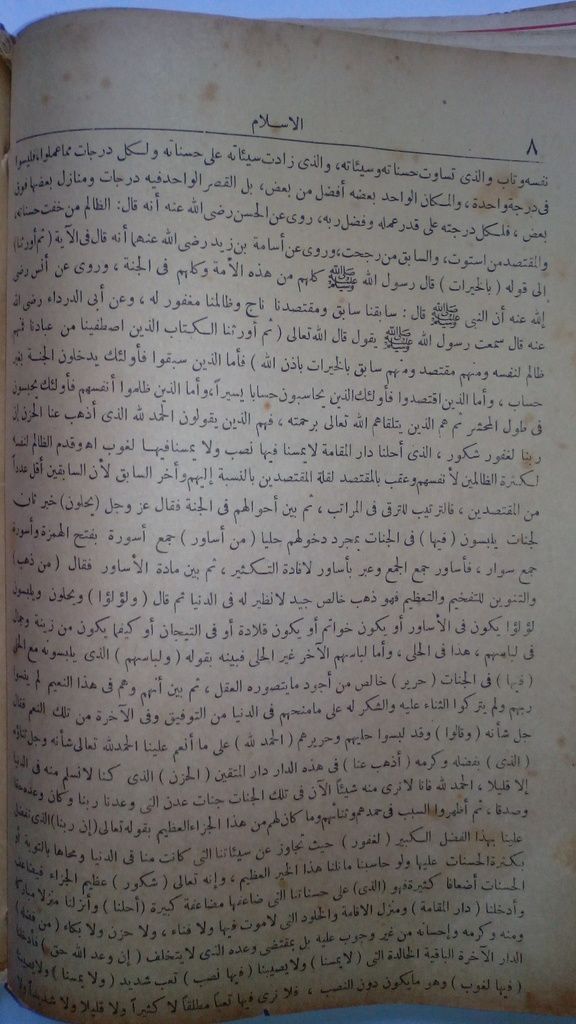 ٨
الاسلام
نفسه وتاب والذى تساوت حسناته وسيئاته، والذى زادت سيئاته على حسناته ولكل درجات مما عملوا، فليسوا
فى درجة واحدة، والمكان الواحد بعضه أفضل من بعض، بل القصر الواحد فيه درجات ومنازل بعضها فوق
بعض، فلكل درجته على قدر عمله وفضل ربه، روى عن الحسن رضى الله عنه أنه قال: الظالم من خفت حسناته،
والمقتصد من استوت، والسابق من رجحت، وروى عن أسامة بن زيد رضى الله عنهما أنه قال فى الآية (ثم أورثنا)
إلى قوله (بالخيرات) قال رسول الله ﷺ كلهم من هذه الأمة وكلهم فى الجنة، وروى عن أنس رضى
الله عنه أن النبى ﷺ قال: سابقنا سابق ومقتصدنا ناج وظالمنا مغفور له، وعن أبى الدرداء رضى الله
عنه قال سمعت رسول الله ﷺ يقول قال الله تعالى (ثم أورثنا الكتاب الذين اصطفينا من عبادنا فمنهم
ظالم لنفسه ومنهم مقتصد ومنهم سابق بالخيرات باذن الله) فأما الذين سبقوا فأولئك يدخلون الجنة بغير
حساب، وأما الذين اقتصدوا فأولئك الذين يحاسبون حسابا يسيرا، وأما الذين ظلموا أنفسهم فأولئك يحبسون
فى طول المحشر ثم هم الذين يتلقاهم الله تعالى برحمته، فهم الذين يقولون الحمد لله الذى أذهب عنا الحزن إن
ربنا لغفور شكور، الذى أحلنا دار المقامة لا يمسنا فيها نصب ولا يمسنا فيها لغوب اه وقدم الظالم لنفسه
لكثرة الظالمين لأنفسهم وعقب بالمقتصد لقلة المقتصدين بالنسبة إليهم وأخر السابق لأن السابقين أقل عددا
من المقتصدين، فالترتيب للترقى فى المراتب، ثم بين أحوالهم فى الجنة فقال عز وجل (يحلون) خبر ثان
لجنات يلبسون (فيها) فى الجنات بمجرد دخولهم حليا (من أساور) جمع أسورة بفتح الهمزة وأسورة
جمع سوار، فأساور جمع الجمع وعبر بأساور لافادة التكثير، ثم بين مادة الأساور فقال (من ذهب)
والتنوين للتفخيم والتعظيم فهو ذهب خالص جيد لا نظير له فى الدنيا ثم قال (ولؤلؤا) ويحلون ويلبسون
لؤلؤا يكون فى الأساور أو يكون خواتم أو يكون قلادة أو فى التيجان أو كيفما يكون من زينة وجمال
فى لباسهم، هذا فى الحلى، وأما لباسهم الآخر غير الحلى فبينه بقوله (ولباسهم) الذى يلبسونه مع الحلى
(فيها) فى الجنات (حرير) خالص من أجود ما يتصوره العقل، ثم بين أنهم وهم فى هذا النعيم لم ينسوا
ربهم ولم يتركوا الثناء عليه والشكر له على ما منحهم فى الدنيا من التوفيق وفى الآخرة من تلك النعم فقال
جل شأنه (وقالوا) وقد لبسوا حليهم وحريرهم (الحمد لله) على ما أنعم علينا الحمد لله تعالى شأنه وجل ثناؤه
(الذى) بفضله وكرمه (أذهب عنا) فى هذه الدار دار المتقين (الحزن) الذى كنا لا نسلم منه فى الدنيا
إلا قليلا، الحمد لله فانا لا نرى منه شيئا الآن فى تلك الجنات جنات عدن التى وعدنا ربنا وكان وعده حقا
وصدقا، ثم أظهروا السبب فى حمدهم وثنائهم وما كان لهم من هذا الجزاء العظيم بقوله تعالى (إن ربنا) الذى تفضل
علينا بهذا الفضل الكبير (لغفور) حيث تجاوز عن سيئاتنا التى كانت منا فى الدنيا ومحاها بالتوبة أو
بكثرة الحسنات عليها ولو حاسبنا ما نلنا هذا الخير العظيم، وإنه تعالى (شكور) عظيم الجزاء فيضاعف
الحسنات أضعافا كثيرة فهو (الذى) على حسناتنا التى ضاعفها مضاعفة كبيرة (أحلنا) وأنزلنا منزلا مباركا
وأدخلنا (دار المقامة) ومنزل الاقامة والخلود التى لا موت فيها ولا فناء، ولا حزن ولا بكاء (من فضله)
ومنه وكرمه وإحسانه من غير وجوب عليه بل بمقتضى وعده الذى لا يتخلف (إن وعد الله حق) فأدخلنا
الدار الآخرة الباقية الخالدة التى (لا يمسنا) ولا يصيبنا (فيها نصب) تعب شديد (ولا يمسنا) ولا يصيبنا
(فيها لغوب) وهو ما يكون دون النصب، فلا نرى فيها تعبا مطلقا لا كثيرا ولا قليلا ولا شديدا ولا